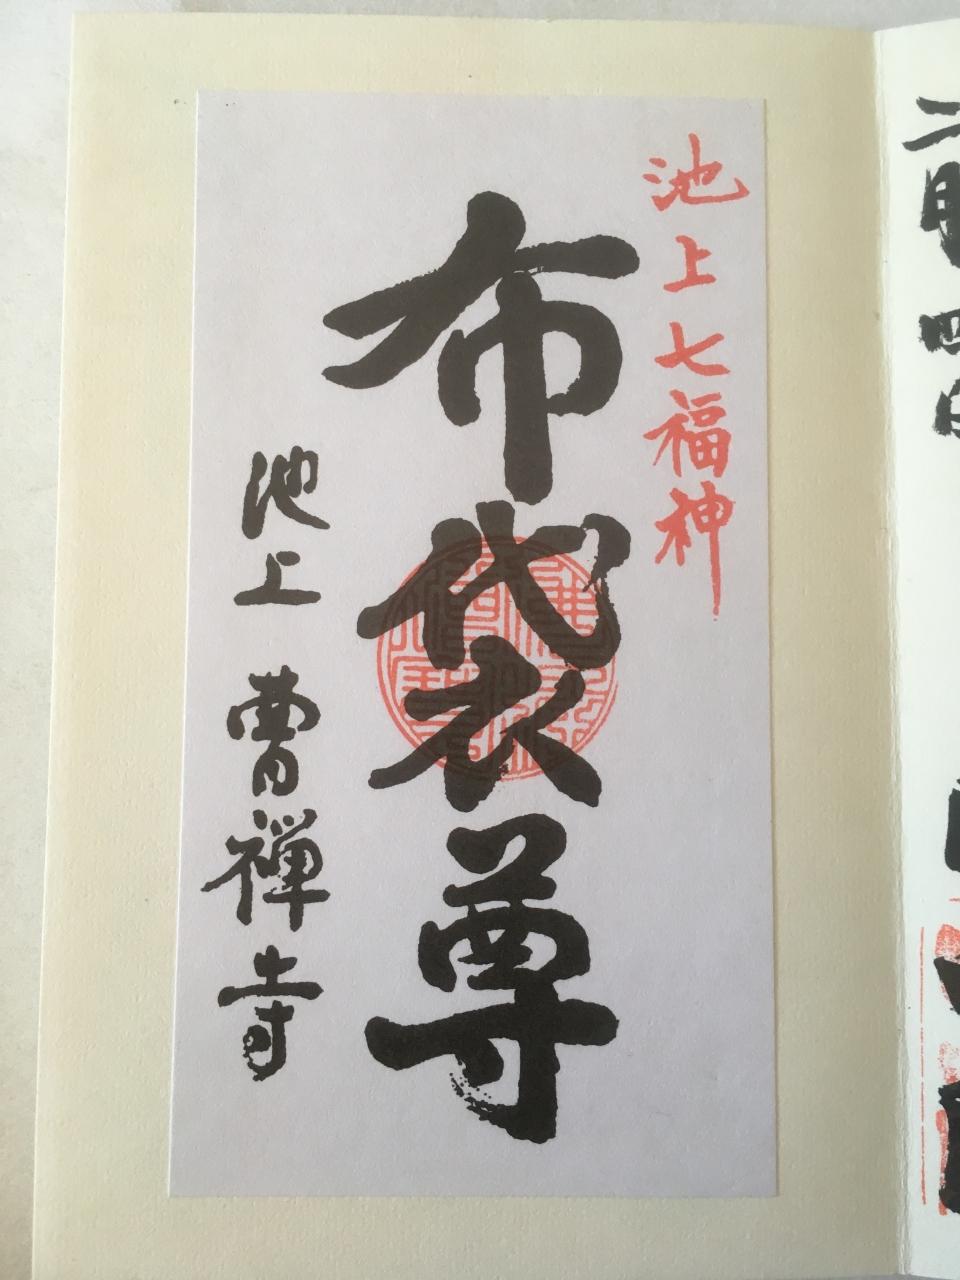 二月四日
池上七福神
布袋尊
池上 曹禅寺